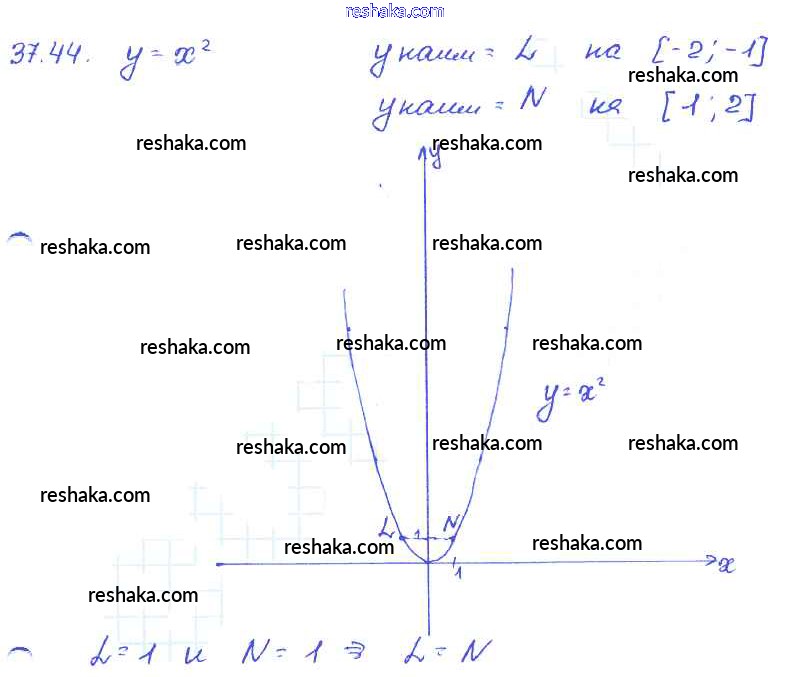 reshaka.com
37.44. y = x² y наим = L на [-2; -1]
reshaka.com
y наим = N на [1; 2]
reshaka.com y reshaka.com
reshaka.com
reshaka.com reshaka.com reshaka.com
reshaka.com reshaka.com reshaka.com
y = x²
reshaka.com reshaka.com reshaka.com
reshaka.com
L 1 N
reshaka.com reshaka.com
x
1
reshaka.com
L = 1 и N = 1 ⇒ L = N